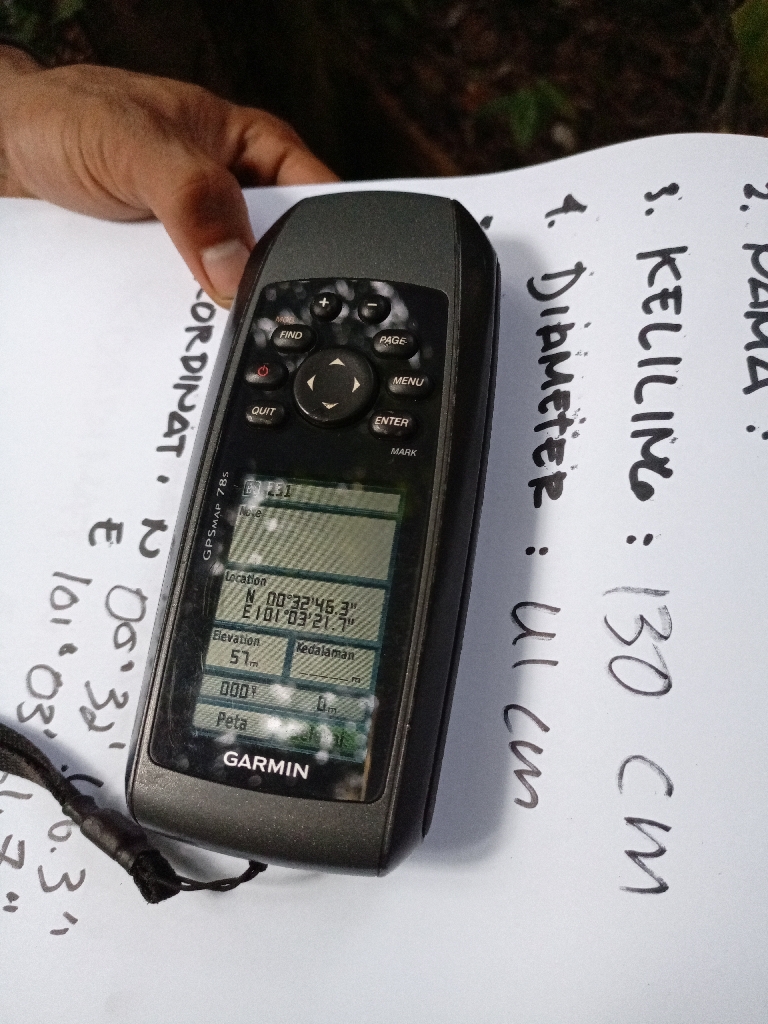 2. NAMA :
3. KELILING : 130 CM
4. DIAMETER : 41 CM
ORDINAT : N 00°32' 6.3"
E 101°03' 1.7"
+ -
FIND PAGE
MENU
QUIT ENTER
MARK
GPSMAP 78s
231
Note
Location
N 00°32'46.3"
E101°03'21.7"
Elevation Kedalaman
57m _____m
0m
Peta
GARMIN